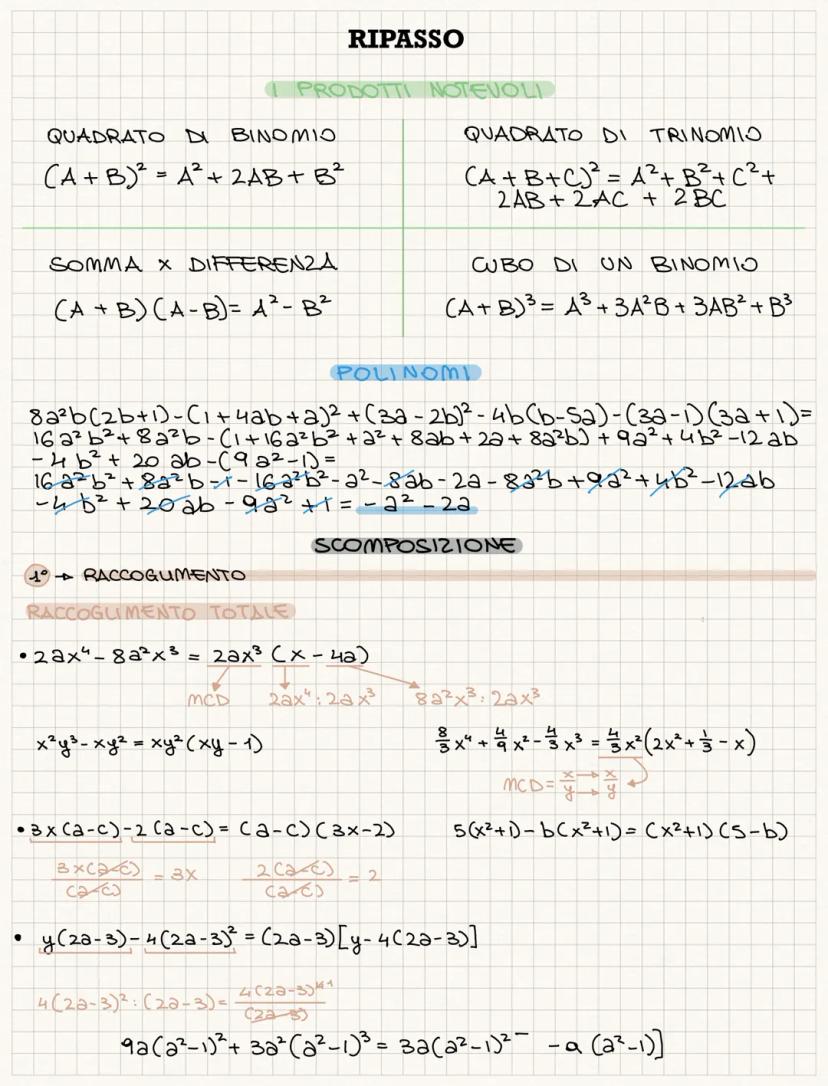 RIPASSO
I PRODOTTI NOTEVOLI
QUADRATO DI BINOMIO
(A + B)² = A² + 2AB + B²
QUADRATO DI TRINOMIO
(A + B + C)² = A² + B² + C² +
2AB + 2AC + 2BC
SOMMA x DIFFERENZA
(A + B)(A - B) = A² - B²
CUBO DI UN BINOMIO
(A + B)³ = A³ + 3A²B + 3AB² + B³
POLINOMI
8a²b(2b+1) - (1+4ab+a)² + (3a-2b)² - 4b(b-5a) - (3a-1)(3a+1) =
16a²b² + 8a²b - (1+16a²b²+a²+8ab+2a+8a²b) + 9a² + 4b² - 12ab
- 4b² + 20ab - (9a²-1) =
16a²b² + 8a²b - 1 - 16a²b² - a² - 8ab - 2a - 8a²b + 9a² + 4b² - 12ab
- 4b² + 20ab - 9a² + 1 = - a² - 2a
SCOMPOSIZIONE
1° → RACCOGLIMENTO
RACCOGLIMENTO TOTALE
• 2ax⁴ - 8a²x³ = 2ax³ (x - 4a)
MCD 2ax⁴ : 2ax³ 8a²x³ : 2ax³
x²y³ - xy² = xy²(xy - 1)
8/3 x⁴ + 4/9 x² - 4/3 x³ = 4/3 x²(2x² + 1/3 - x)
MCD = x/y → x/y
• 3x(a-c) - 2(a-c) = (a-c)(3x-2)
5(x²+1) - b(x²+1) = (x²+1)(5-b)
3x(a-c)/(a-c) = 3x 2(a-c)/(a-c) = 2
• y(2a-3) - 4(2a-3)² = (2a-3)[y - 4(2a-3)]
4(2a-3)² : (2a-3) = 4(2a-3)/(2a-3)
9a(a²-1)² + 3a²(a²-1)³ = 3a(a²-1)² - a (a²-1)]